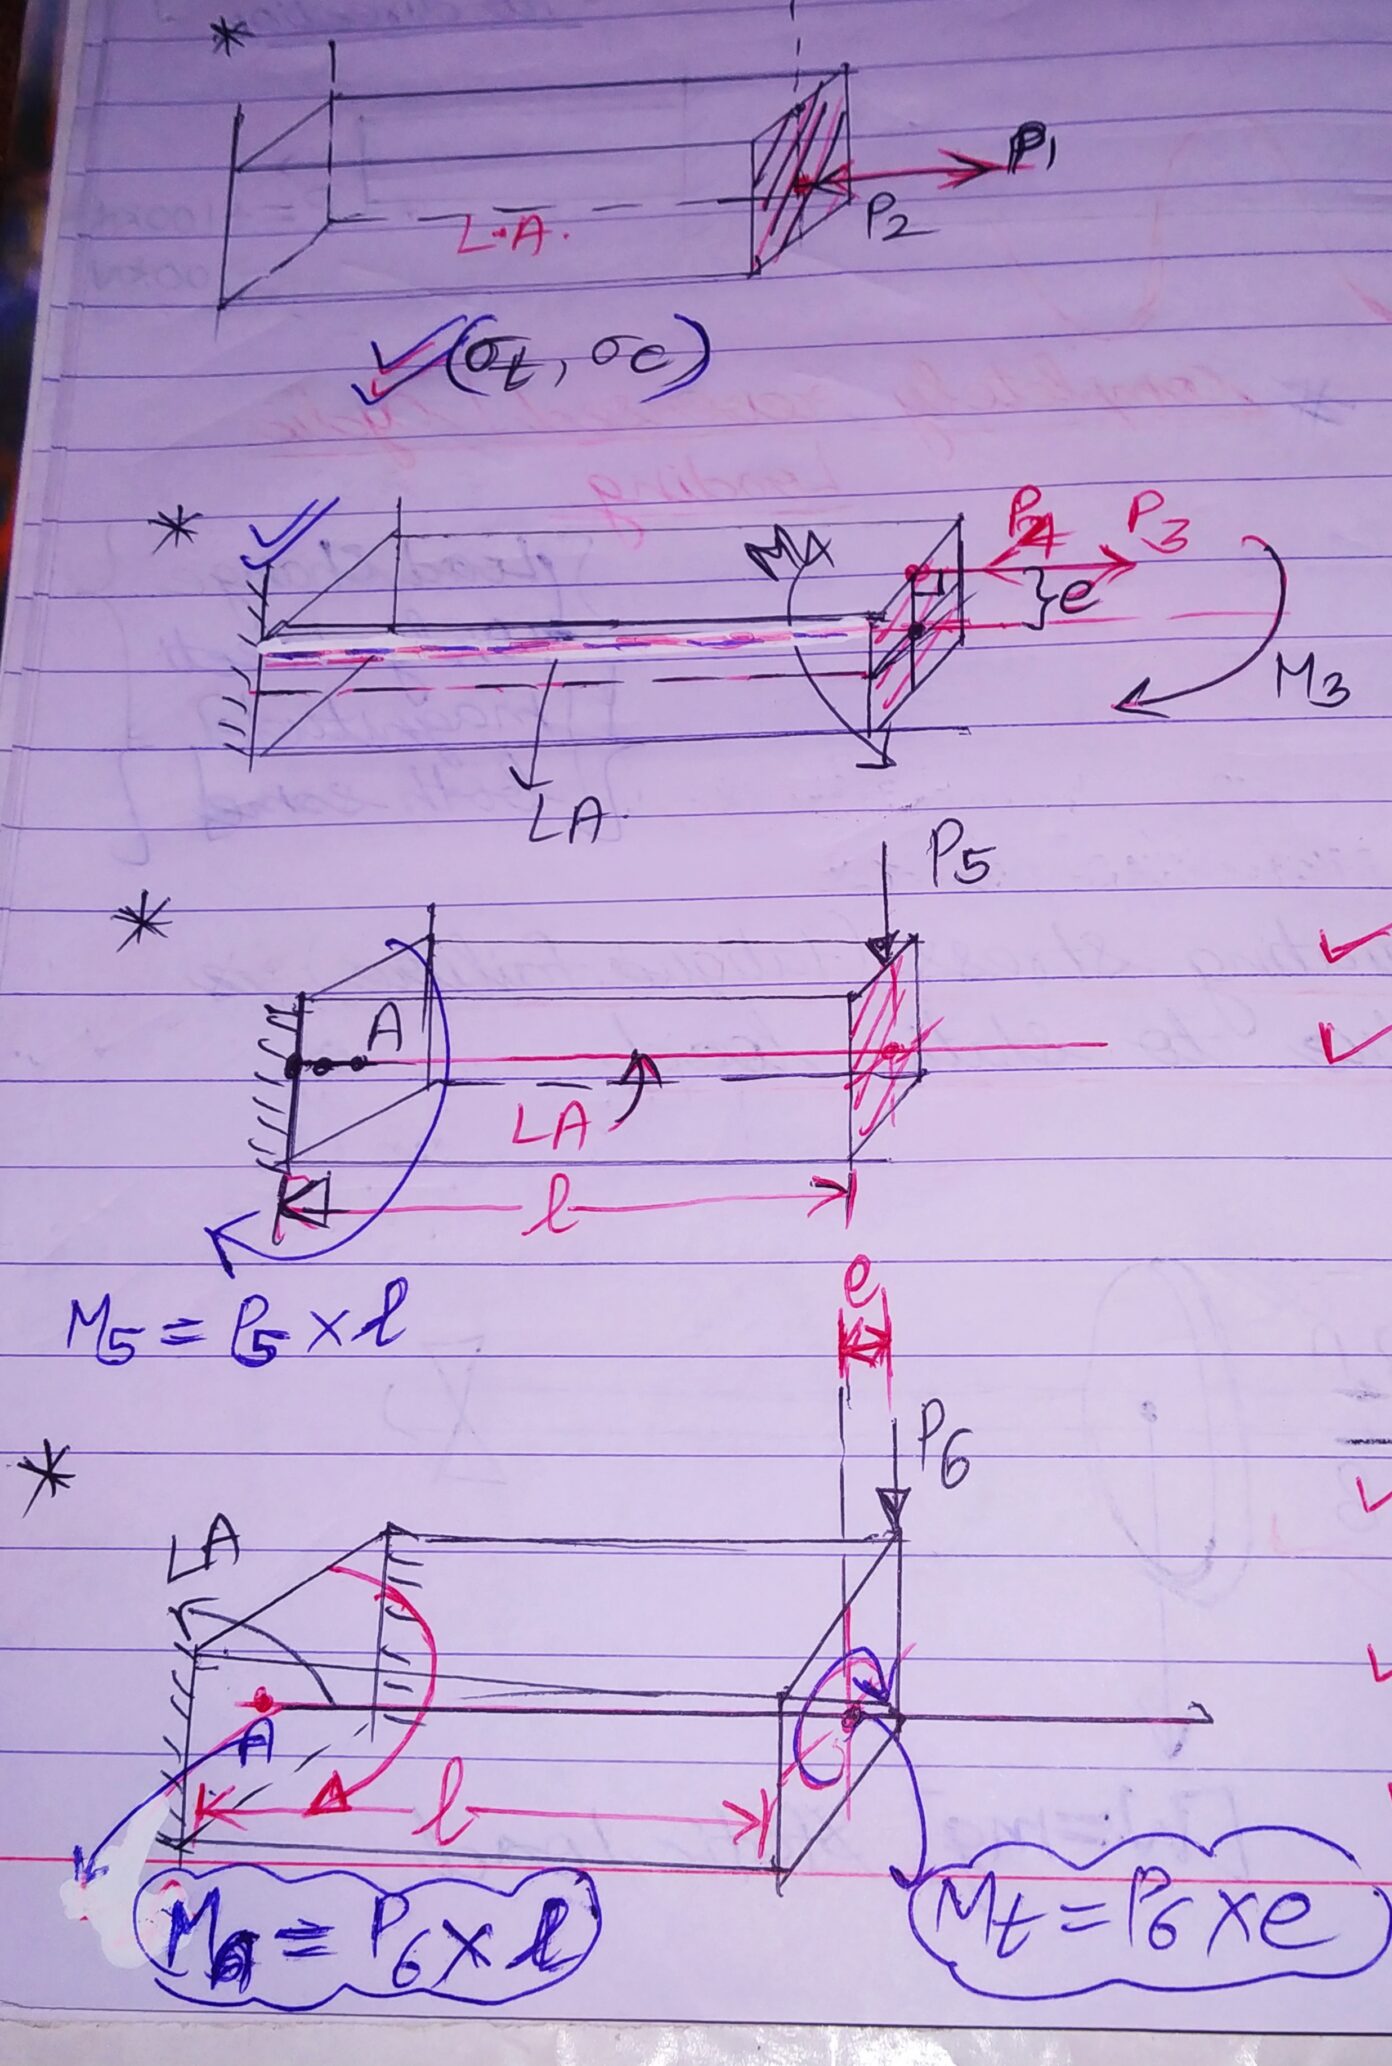 *
P₁
P₂
L.A.
(σt, σc)
*
P4 P3
M4
}e
M3
LA
*
P5
A
LA
l
M5 = P5 × l
e
*
P6
LA
A
l
M6 = P6 × l
Mt = P6 × e